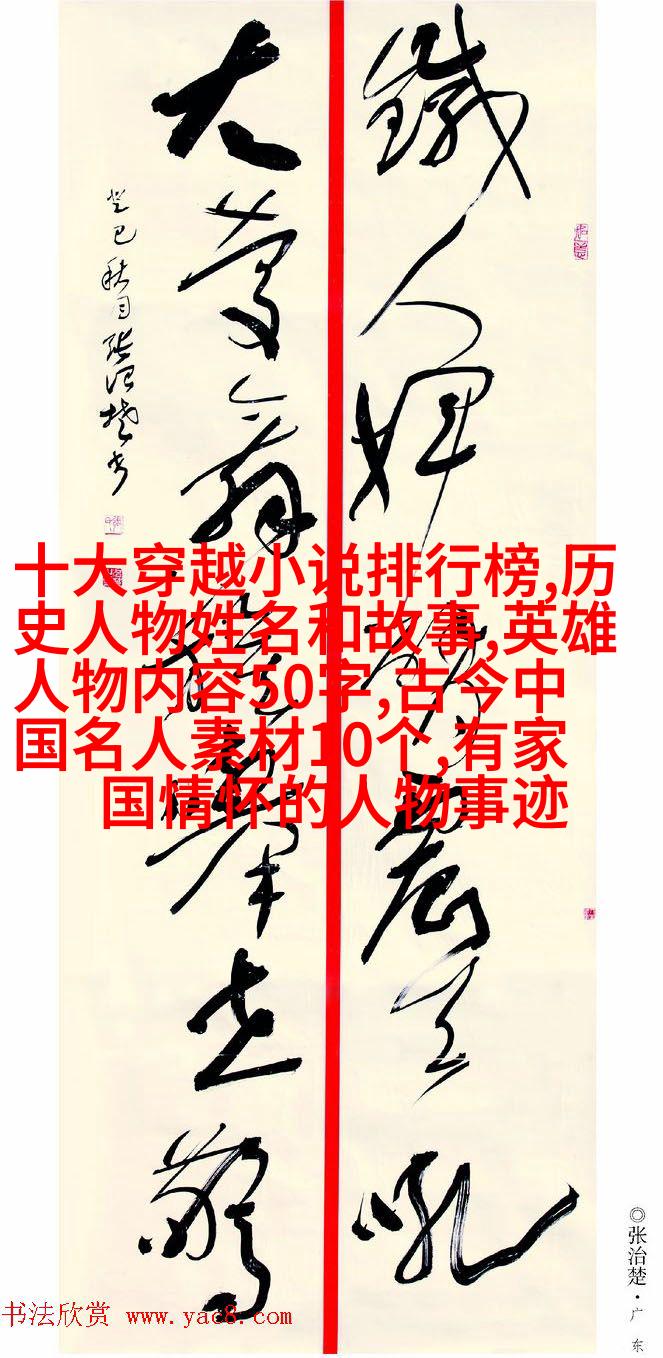 鐵人揮臂震天吼
大慶會戰舉世驚
癸巳秋月張治楚書
十大穿越小说排行榜,历
史人物姓名和故事,英雄
人物内容50字,古今中
国名人素材10个,有家
国情怀的人物事迹
◎张治楚·广东
书法欣赏 www.yac8.com